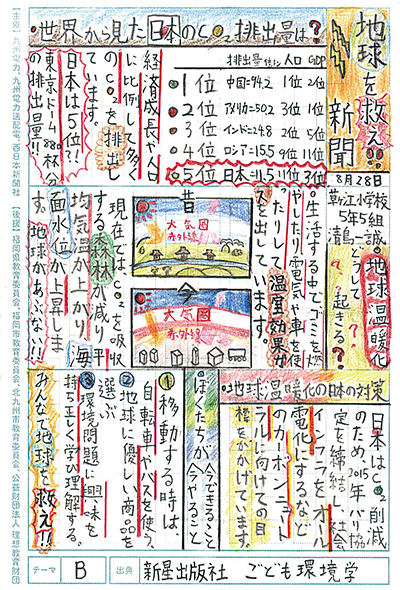 地球を救え!!
新聞
8月28日
草ヶ江小学校
5年5組
清島一誠
・世界から見た日本のCO₂排出量は?
排出量 億t 人口 GDP
1位 中国=94.2 1位 2位
2位 アメリカ=50.2 3位 1位
3位 インド=24.8 2位
4位 ロシア=15.5 9位
5位 日本=11.5 11位 3位
経済成長や人口
に比例して多く
のCO₂を排出し
ています。
日本は5位?!
東京ドーム
の排出量!!
・地球温暖化
どうして
起きる?
・生活する中でゴミを燃
やしたり電気や車を使
ったりして温室効果ガ
スを出しています。
昔
大気圏
赤外線
今
大気圏
赤外線
現在では、CO₂を吸収
する森林が減り平
均気温が上がり、海
面水位が上昇しま
す。地球があぶない!!
・地球温暖化の日本の対策
日本はCO₂削減
のため、2015年パリ協
定を締結し、社会
インフラをオール
電化にするなど
のカーボンニュート
ラルに向けての目
標をかかげています。
ぼくたちが今できること
今やること
①移動する時は、
自転車やバスを使う。
②地球に優しい商品を
選ぶ
③環境問題に興味を
持ち正しく学び理解する。
みんなで地球を救え!!
テーマ B 出典 新星出版社 こども環境学
【主催】九州電力、九州電力送配電、西日本新聞社 【後援】福岡県教育委員会、福岡市教育委員会、北九州市教育委員会、公益財団法人 理想教育財団